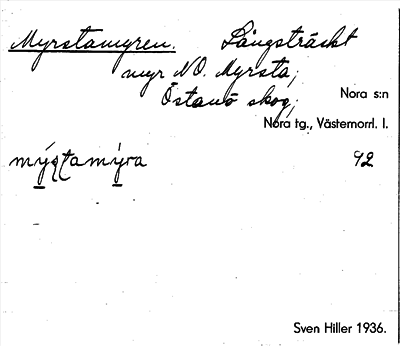 Myrstamyren. Långsträckt
myr NO. Myrsta;
Östanö skog;
Nora s:n
Nora tg., Västernorrl. l.
92
Sven Hiller 1936.